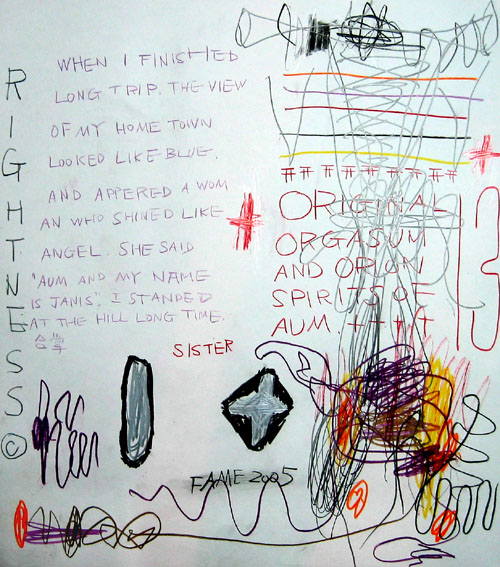 RIGHTNESS ©
WHEN I FINISHED
LONG TRIP. THE VIEW
OF MY HOME TOWN
LOOKED LIKE BLUE.
AND APPERED A WOM
AN WHO SHINED LIKE
ANGEL. SHE SAID
"AUM AND MY NAME
IS JANIS". I STANDED
AT THE HILL LONG TIME.
SISTER
ORIGINAL
ORGASUM
AND ORION
SPIRITS OF
AUM. ++++
FAME 2005